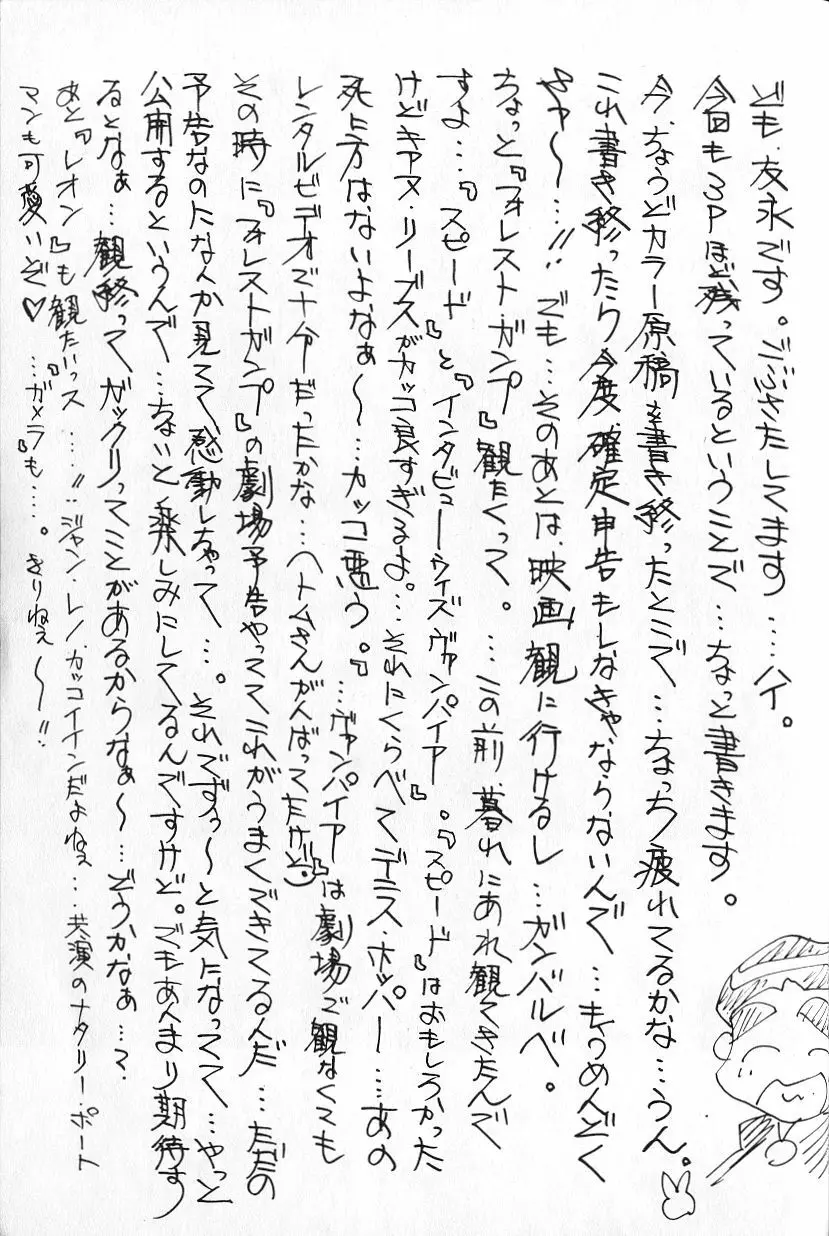 ども、友永です。ごぶさたしてます……ハイ。
今回も3Pほど残っているということで…ちょっと書きます。
今、ちょうどカラー原稿を書き終ったとこで…ちょっち疲れてるかな…うん。
これ書き終ったら今度、確定申告もしなきゃならないんで…もうめんどく
せァ〜…!! でも…そのあとは、映画観に行けるし…ガンバルベ。
ちょっと『フォレスト・ガンプ』観たくって。…この前暮れにあれ観てきたんで
すよ…『スピード』と『インタビューウィズヴァンパイア』。『スピード』はおもしろかった
けどキアヌ・リーブスがカッコ良すぎるよ。…それにくらべてデニス・ホッパー……あの
死に方はないよなぁ〜…カッコ悪う。…『ヴァンパイア』は劇場で観なくても
レンタルビデオで十分だったかな…ヘトムさんがんばってたけど
その時に『フォレストガンプ』の劇場予告やっててこれがうまくできてるんだ…ただの
予告なのになんか見てて、感動しちゃって…。それでずぅ〜と気になってて…やっと
公開するというんで…ちょいと楽しみにしてるんですけど。でもあんまり期待す
るとなぁ…観終ってガックリってことがあるからなぁ〜…どうかなぁ…て.
あと『レオン』も観たいっス……!!ジャン・レノ、カッコイインだよねぇ…共演のナタリー・ポート
マンも可愛いぞ♡…『ガメラ』も……。きりねぇ〜!!